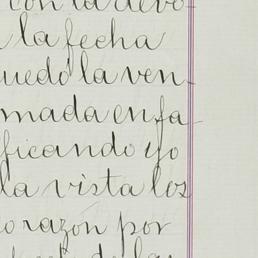 con la devo-
la fecha
uedó la ven-
mada en fa-
ficando yo
la vista los
orazón por